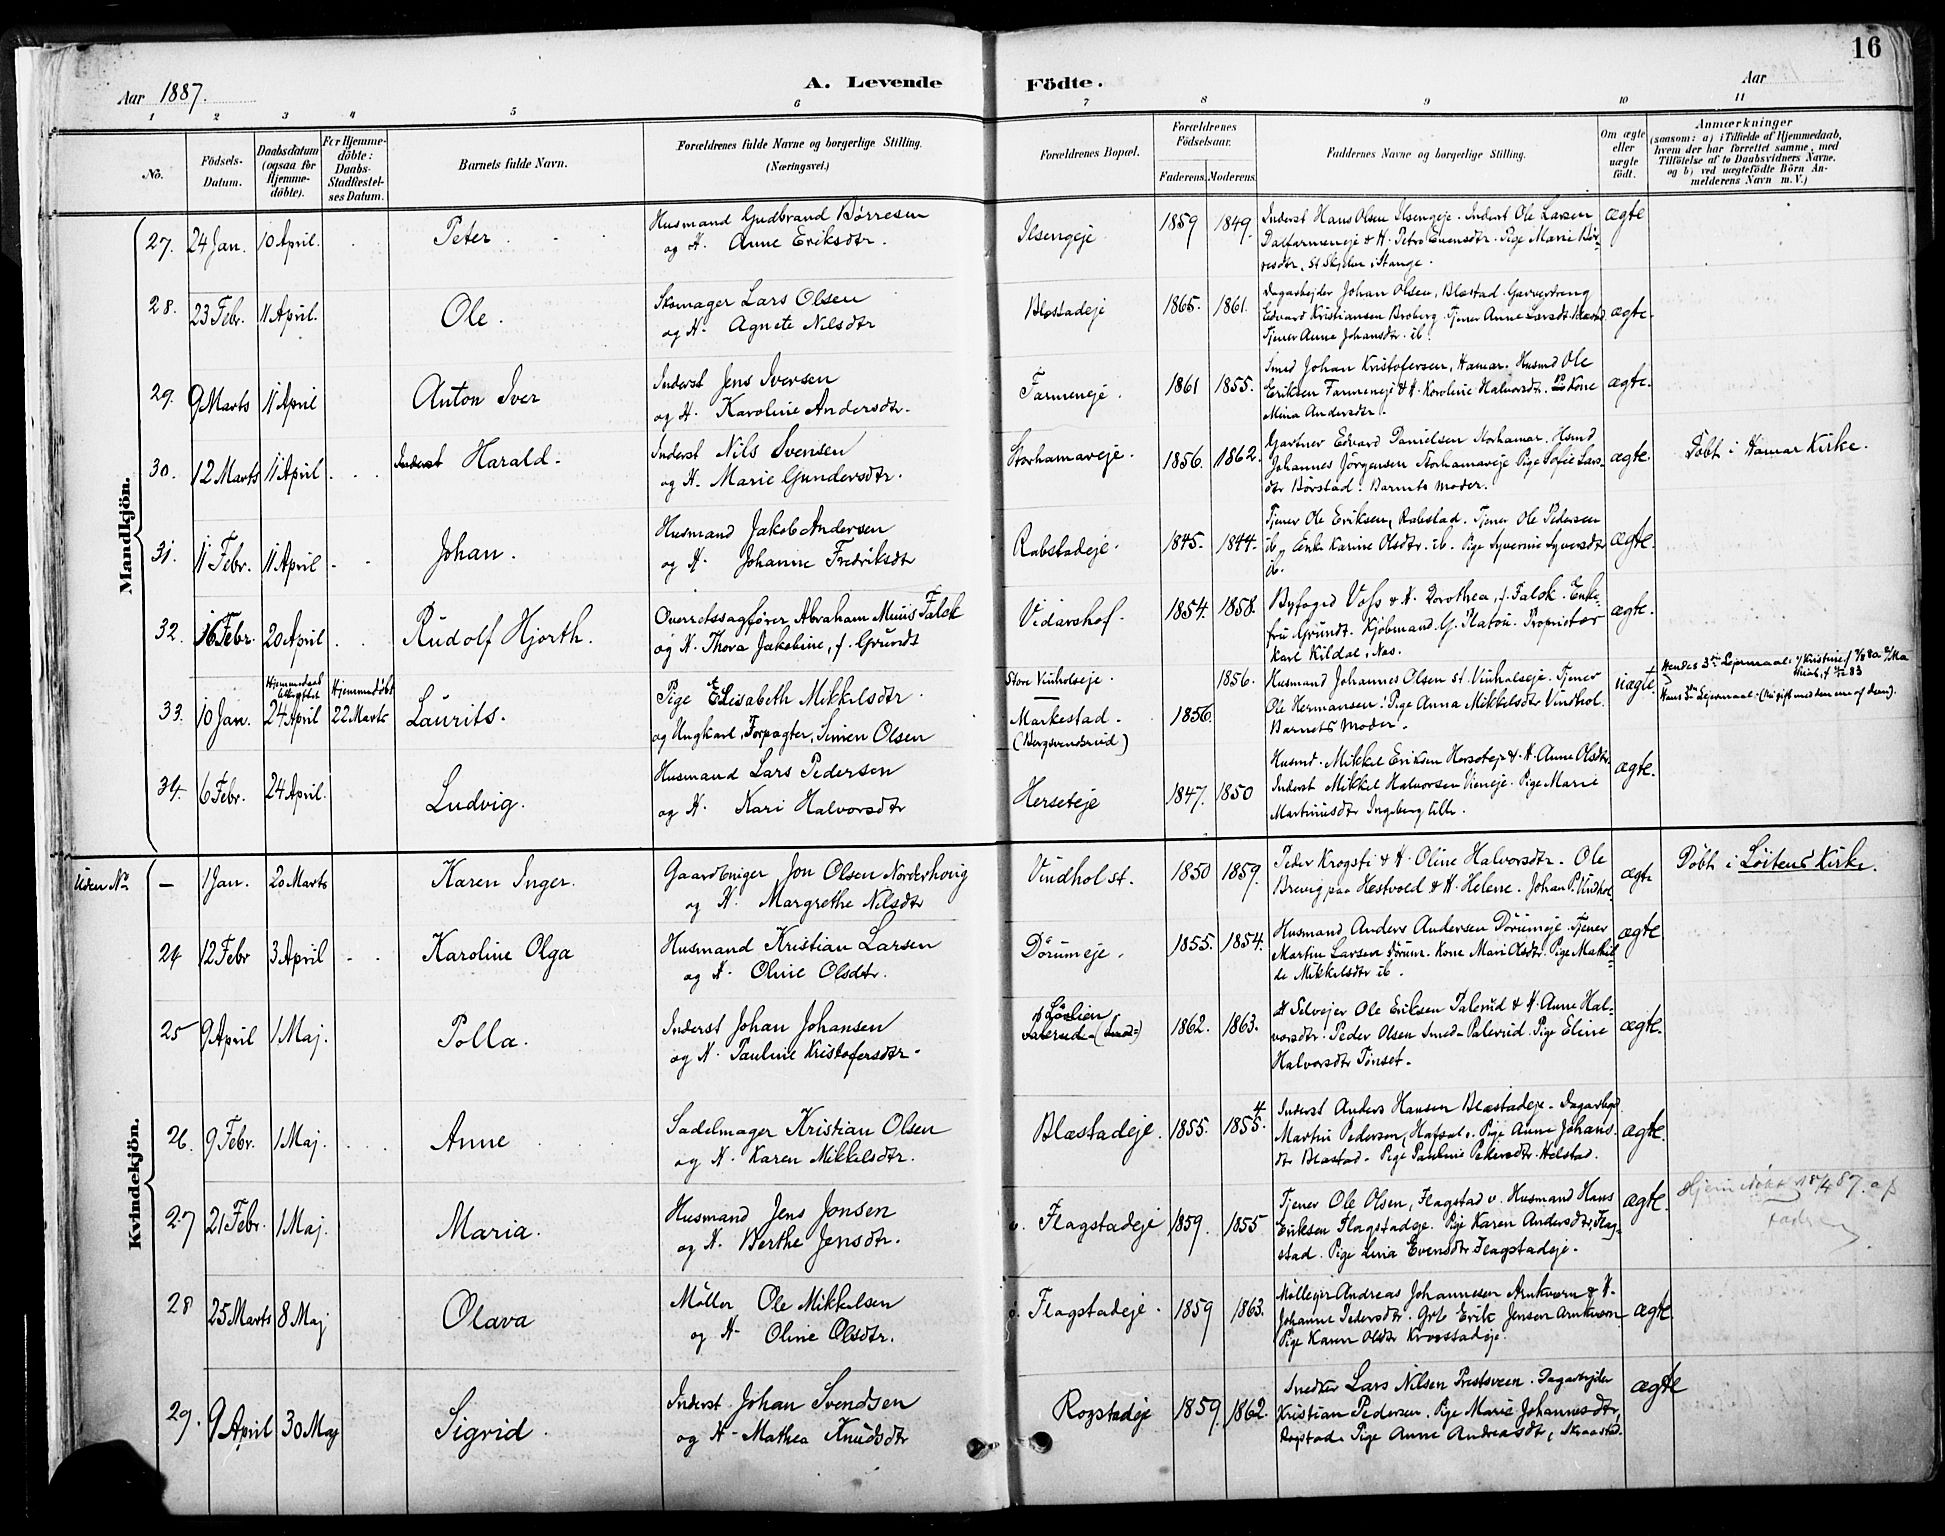 16
Aar 1887.
A. Levende Födte.
Aar
1 2 3 4 5 6 7 8 9 10 11
No.
Födsels-Datum.
Daabsdatum (ogsaa for Hjemme-döbte).
For Hjemme-döbte: Daabs-Stadfæstel-ses Datum.
Barnets fulde Navn.
Forældrenes fulde Navne og borgerlige Stilling.
(Næringsvei.)
Forældrenes Bopæl.
Forældrenes Födselsaar.
Faderens. Moderens.
Faddernes Navne og borgerlige Stilling.
Om ægte eller uægte födt.
Anmærkninger
(saasom: a) i Tilfælde af Hjemmedaab,
hvem der har forrettet samme, med
Tilföielse af to Daabsvidners Navne.
og b) ved uægtefödte Börn An-
melderens Navn m. V.)
Mandkjön.
27. 24 Jan. 10 April. Peter.
Husmand Gudbrand Börresen
og H. Anne Eriksdtr.
Ilsengeje. 1859 1849.
Inderst Hans Olsen Ilsengeje. Inderst Ole Larsen
Dalfarmeneje & H. Petra Evensdtr. Pige Marie Bör-
resdtr, St Skjelve i Stange.
ægte
28. 23 Febr. 11 April. Ole.
Skomager Lars Olsen
og H. Agnete Nilsdtr
Blæstadeje 1865. 1861.
Dagarbejder Johan Olsen, Blæstad. Garverdreng
Edvard Kristiansen Broberg. Tjener Anne Larsdt. Blæstad.
Tjener Anne Johansdtr. ib.
ægte.
29. 9 Marts 11 April Anton Iver
Inderst Jens Iversen
og H. Karoline Andersdtr.
Farmeneje. 1861 1855.
Smed Johan Kristofersen, Hamar. Husmd Ole
Eriksen Farmeneje & H. Karoline Halvorsdtr. Kone
Mina Andersdtr.
ægte.
30. 12 Marts 11 April Harald.
Inderst Nils Svensen
og H. Marie Gundersdtr.
Storhamareje. 1856. 1862.
Gartner Edvard Danielsen Storhamar. Hsmd
Johannes Jörgensen Storhamareje Pige Sofie Lars-
dtr Börstad. Barnets Moder.
ægte. Döbt i Hamar Kirke.
31. 11 Febr. 11 April Johan.
Husmand Jakob Andersen
og H. Johanne Fredriksdtr
Rabstadeje. 1845. 1844.
Tjener Ole Eriksen, Rabstad. Tjener Ole Pedersen
ib, Enke Karine Olsdtr. ib. Pige Syverine Syversdtr
ib.
ægte.
32. 16 Febr. 20 April Rudolf Hjorth.
Overretssagförer Abraham Munis Falck
og H. Thora Jakobine, f. Grundt
Vidarshof. 1854. 1858.
Byfoged Voss & H. Dorothea, f. Falck. Enke-
fru Grundt. Kjöbmand G. Platou. Proprietær
Karl Kildal, Næs.
ægte.
33. 10 Jan. Hjemmedaab 24 April Hjemmedöbt 22 Marts Laurits.
Pige Elisabeth Mikkelsdtr.
og Ungkarl, Forpagter, Simen Olsen
Store Vinholseje. 1856.
Markestad. 1856.
(Bergsvendsrud)
Husmand Johannes Olsen st. Vinholseje. Tjener
Ole Hermansen. Pige Anna Mikkelsdtr Vindhol.
Barnets Moder.
uægte.
Hendes 3die Lejermaal:
Hans 3die Lejermaal: (Nu gift med en af dem).
34. 6 Febr. 24 April. Ludvig.
Husmand Lars Pedersen
og H. Kari Halvorsdtr
Herseteje 1847. 1850
Husmd. Mikkel Eriksen Herseteje & H. Anne Olsdtr.
Inderst Mikkel Halvorsen Vieneje. Pige Marie
Martinusdtr Ingeberg lille.
ægte.
Kvindekjön.
Uden No — 1 Jan. 20 Marts Karen Inger.
Gaardbruger Jon Olsen Norderhovig
og H. Margrethe Nilsdtr
Vindhol st. 1850 1859.
Peder Krogsti & H. Oline Halvorsdtr. Ole
Brevig paa Hestvold & H. Helene. Johan P. Vindhol
ægte Döbt i Löitens Kirke.
24 12 Febr 3 April Karoline Olga
Husmand Kristian Larsen
og H. Oline Olsdtr.
Dörumeje. 1855. 1854.
Husmand Anders Andersen Dörumeje. Tjener
Martin Larsen Dörum. Kone Mari Olsdtr. Pige Mathil-
de Mikkelsdtr ib.
ægte
25 9 April 1 Maj. Polla.
Inderst Johan Johansen
og H. Pauline Kristofersdtr.
1862. 1863.
Selvejer Ole Eriksen Palerud & H. Anne Hal-
vorsdtr. Peder Olsen Smed-Palerud. Pige Eline
Halvorsdtr Tönset.
ægte.
26. 9 Febr. 1 Maj. Anne
Sadelmager Kristian Olsen
og H. Karen Mikkelsdtr.
Blæstadeje. 1855. 1855. 4
Inderst Anders Hansen Blæstadeje. Dagarbejd.
Martin Pedersen, Hafsal. Pige Anne Johans-
dtr Blæstad. Pige Pauline Pedersdtr. Helstad.
ægte.
27 21 Febr. 1 Maj. Maria.
Husmand Jens Jonsen
og H. Berthe Jensdtr.
Flagstadeje 1859. 1855
Tjener Ole Olsen, Flagstad v. Husmand Hans
Eriksen Flagstadeje. Pige Karen Andersdtr, Flag-
stad. Pige Lina Evensdtr Flagstadeje.
ægte. Hjemmedöbt 18/4 87. af
Faderen
28 25 Marts 8 Maj Olava
Möller Ole Mikkelsen
og H. Oline Olsdtr.
Flagstadeje. 1859 1863.
Mölleejer Andreas Johannesen Arnkværn & H.
Johanne Pedersdtr. Grb. Erik Jensen Arnkværn
Pige Karen Olsdtr Krogstadeje.
ægte.
29. 9 April 30 Maj Sigrid.
Inderst Johan Svendsen
og H. Mathea Knudsdtr
Rogstadeje 1859. 1862.
Snedker Lars Nilsen Prestsveen. Dagarbejder
Kristian Pedersen. Pige Marie Johannesdtr,
Rogstad. Pige Anne Andreasdtr, Skraastad.
ægte